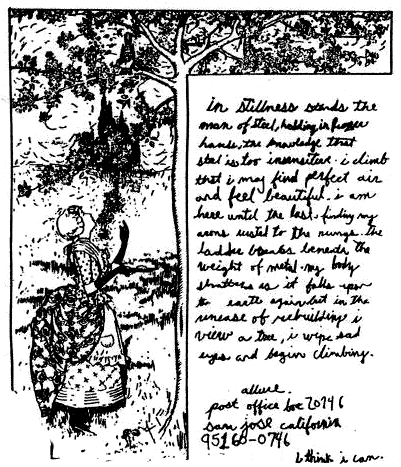 in stillness stands the
man of steel, holding in frozen
hands, the knowledge that
steel is too insensitive. i climb
that i may find perfect air
and feel beautiful. i am
here until the last, finding my
arms rusted to the rungs. the
ladder breaks beneath the
weight of metal. my body
shatters as it falls upon
to earth again. but in the
unease of rebuilding i
view a tree, i wipe sad
eyes and begin climbing.
allure.
post office box 20746
san jose california
95160-0746
i think i can.